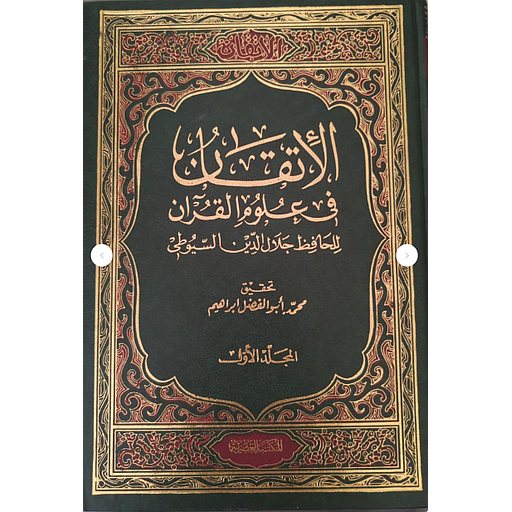 الإتقان
الإتقان
في علوم القرآن
للحافظ جلال الدين السيوطي
تحقيق
محمد أبو الفضل إبراهيم
المجلد الأول
المكتبة العصرية